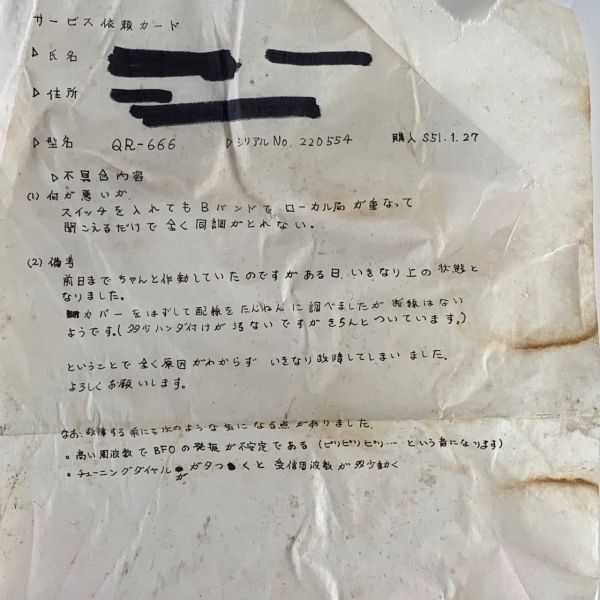 サービス依頼カード
▷氏名
▷住所
▷型名 QR-666 ▷シリアルNo. 220554 購入 S51.1.27
▷不具合内容
(1) 何が悪いか.
スイッチを入れてもBバンドでローカル局が重なって
聞こえるだけで全く同調がとれない。
(2) 備考
前日までちゃんと作動していたのですがある日、いきなり上の状態と
なりました。
カバーをはずして配線をたんねんに調べましたが断線はない
ようです。(多少ハンダ付けが汚ないですがきちんとついています。)
ということで全く原因がわからず いきなり故障してしまいました.
よろしくお願いします。
なお、故障する前にも次のような気になる点がありました.
・高い周波数でBFOの発振が不安定である (ピリピリピリ… という音になります)
・チューニングダイヤルがガタつくと受信周波数が多少動く